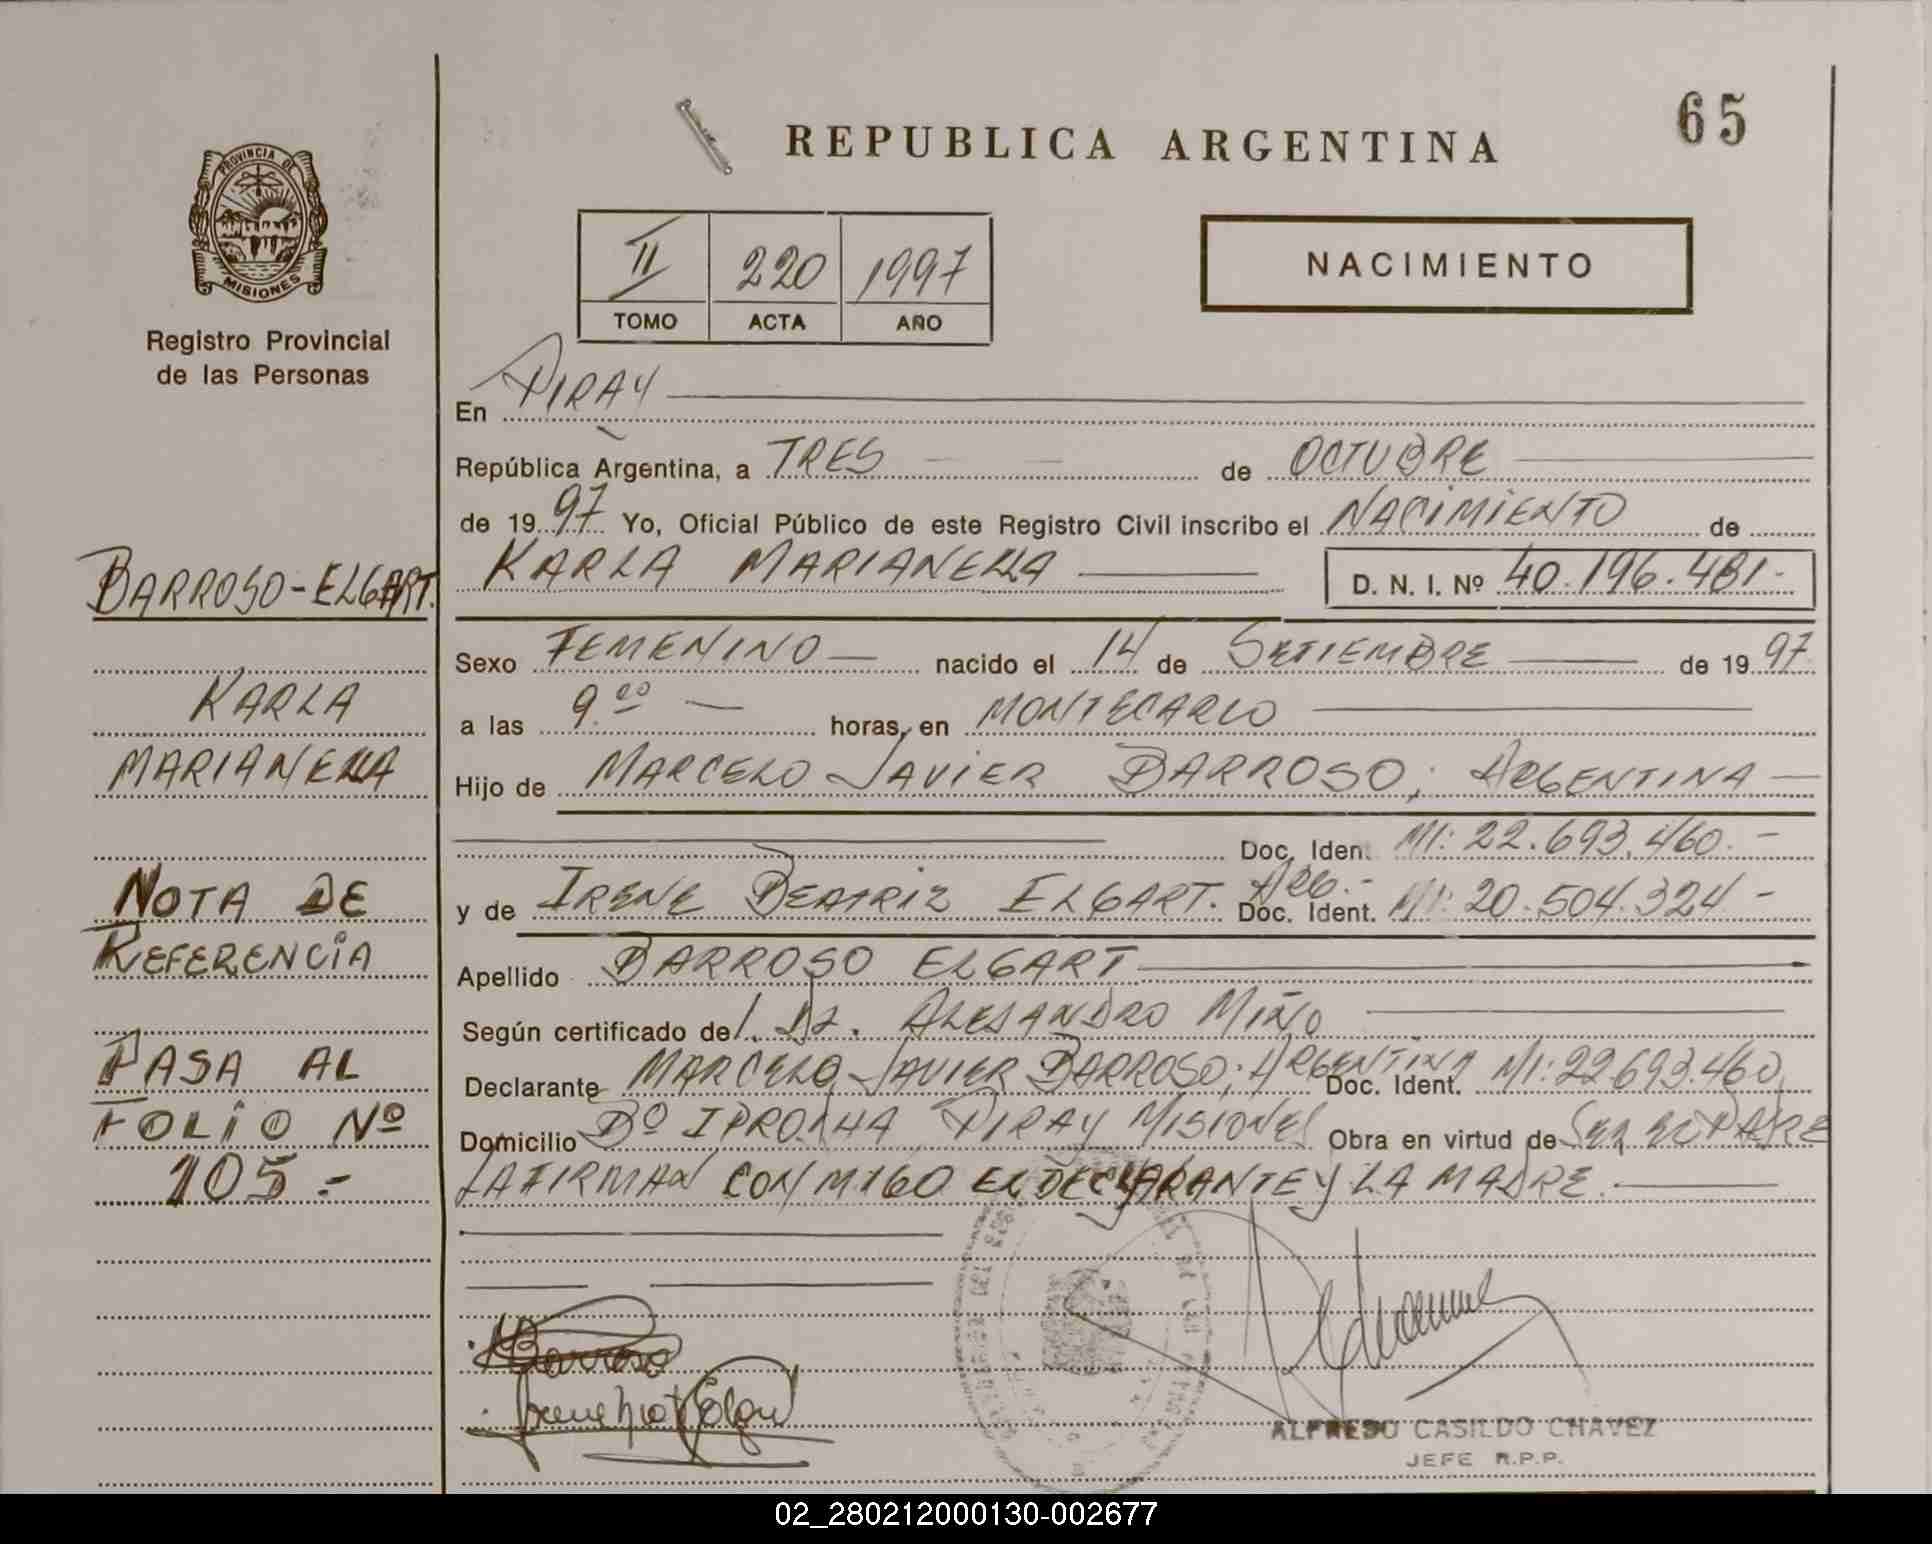 65
REPUBLICA ARGENTINA
PROVINCIA DE
MISIONES
Registro Provincial
de las Personas
II 220 1997
TOMO ACTA AÑO
NACIMIENTO
En PIRAY
República Argentina, a TRES de OCTUBRE
de 1997 Yo, Oficial Público de este Registro Civil inscribo el NACIMIENTO de
KARLA MARIANELLA D. N. I. Nº 40.196.481.-
Sexo FEMENINO nacido el 14 de SETIEMBRE de 1997
a las 9.00 horas, en MONTECARLO
Hijo de MARCELO JAVIER BARROSO; ARGENTINA
Doc. Iden. MI: 22.693.460.-
y de IRENE BEATRIZ ELGART. ARG.- Doc. Ident. MI: 20.504.324.-
Apellido BARROSO ELGART
Según certificado de/. Dr. ALEJANDRO MIÑO
Declarante MARCELO JAVIER BARROSO; ARGENTINA Doc. Ident. MI: 22.693.460
Domicilio Bº IPRODHA PIRAY MISIONES Obra en virtud de SER EL PADRE
LA FIRMAN CON MIGO EL DECLARANTE Y LA MADRE.
BARROSO-ELGART.
KARLA
MARIANELLA
NOTA DE
REFERENCIA
PASA AL
FOLIO Nº
105.-
Barroso
ALFREDO CASILDO CHAVEZ
JEFE R.P.P.
02_280212000130-002677